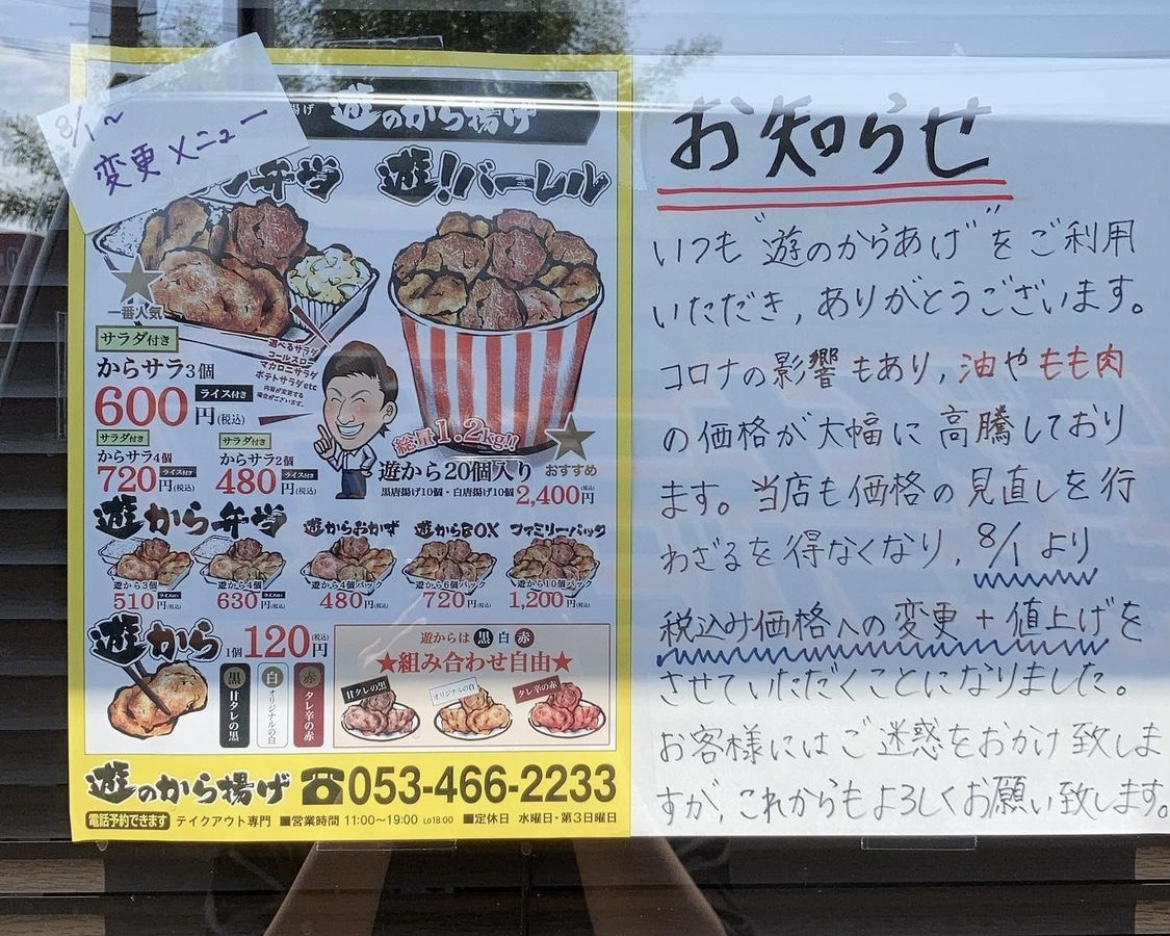 8/1〜
変更メニュー
遊のから揚げ
弁当
遊!バーレル
一番人気
サラダ付き
からサラ3個
600円(税込)
ライス付き
選べるサラダ
コールスロー
マカロニサラダ
ポテトサラダetc
内容が変更する
場合がございます。
サラダ付き
からサラ4個
720円(税込)
ライス付き
サラダ付き
からサラ2個
480円(税込)
ライス付き
総量1.2kg!!
おすすめ
遊から20個入り
黒唐揚げ10個・白唐揚げ10個 2,400円(税込)
遊から弁当
遊から3個
510円(税込)
ライス付き
遊から4個
630円(税込)
ライス付き
遊からおかず
遊から4個パック
480円(税込)
遊からBOX
遊から6個パック
720円(税込)
ファミリーパック
遊から10個パック
1,200円(税込)
遊から 1個120円(税込)
黒 甘タレの黒
白 オリジナルの白
赤 タレ辛の赤
遊からは 黒 白 赤
★組み合わせ自由★
甘タレの黒
オリジナルの白
タレ辛の赤
遊のから揚げ ☎053-466-2233
電話予約できます テイクアウト専門 ■営業時間 11:00〜19:00 Lo18:00 ■定休日 水曜日・第3日曜日
お知らせ
いつも"遊のからあげ"をご利用
いただき,ありがとうございます。
コロナの影響もあり,油やもも肉
の価格が大幅に高騰しており
ます。当店も価格の見直しを行
わざるを得なくなり,8/1より
税込み価格への変更+値上げを
させていただくことになりました。
お客様にはご迷惑をおかけ致しま
すが,これからもよろしくお願い致します。